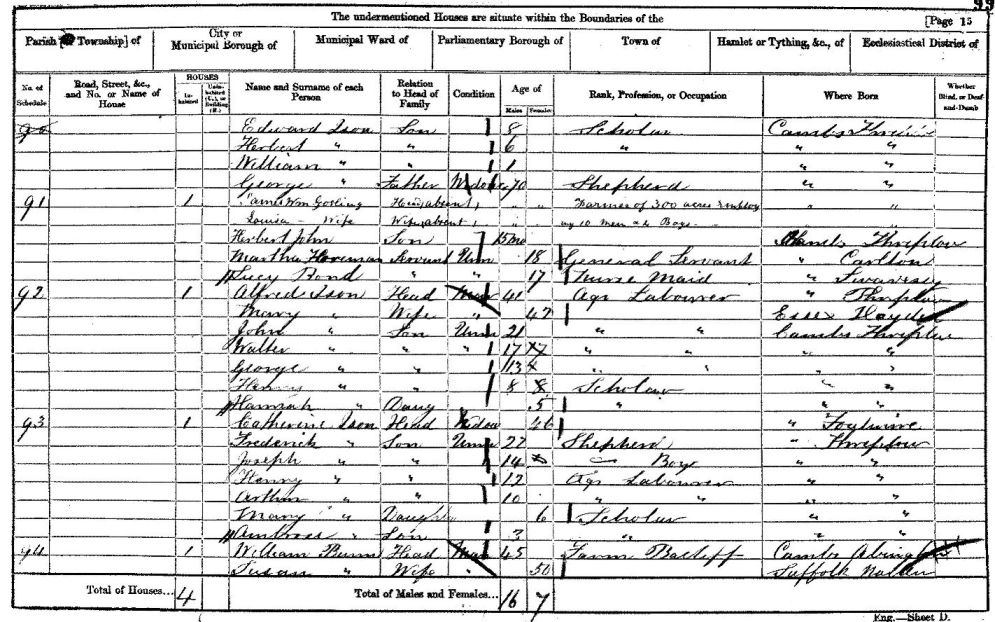 99
The undermentioned Houses are situate within the Boundaries of the
[Page 15
Parish [or Township] of City or Municipal Borough of Municipal Ward of Parliamentary Borough of Town of Hamlet or Tything, &c., of Ecclesiastical District of
No. of Schedule Road, Street, &c., and No. or Name of House HOUSES Inhabited Uninhabited (U.), or Building (B.) Name and Surname of each Person Relation to Head of Family Condition Age of Males Females Rank, Profession, or Occupation Where Born Whether Blind, or Deaf-and-Dumb
90 Edward Ison Son 8 Scholar Cambs
Herbert " " 6 " " "
William " " 1 " "
George " Father Widower 70 Shepherd " "
91 1 James Wm Gosling Head, absent, " " Farmer of 300 acres employ " "
Louisa - Wife Wife, absent, " ing 10 men & 2 Boys
Herbert John Son 15 mo Cambs Thriplow
Martha Servant Unm 18 General Servant " Carlton
Lucy Bond " " 17 Nurse Maid "
92 1 Alfred Ison Head Mar 41 Agr Labourer " Thriplow
Mary " Wife " 47 Essex
John " Son Unm 21 " " Cambs Thriplow
Walter " " " 17 " " " "
George " " 13 " " " "
Henry " " 8 Scholar " "
Hannah " Daug 5 " " "
93 1 Catherine Ison Head Widow 46 "
Frederick " Son Unm 22 Shepherd " Thriplow
Joseph " " 14 " Boy " "
Henry " " 12 Agr Labourer " "
Arthur " " 10 " " " "
Mary " Daughter 6 Scholar " "
Ambrose " Son 3 " " "
94 1 William Head Mar 45 Farm Bailiff Cambs Abington
Susan " Wife " 50 Suffolk
Total of Houses... 4 Total of Males and Females... 16 7
Eng.—Sheet D.